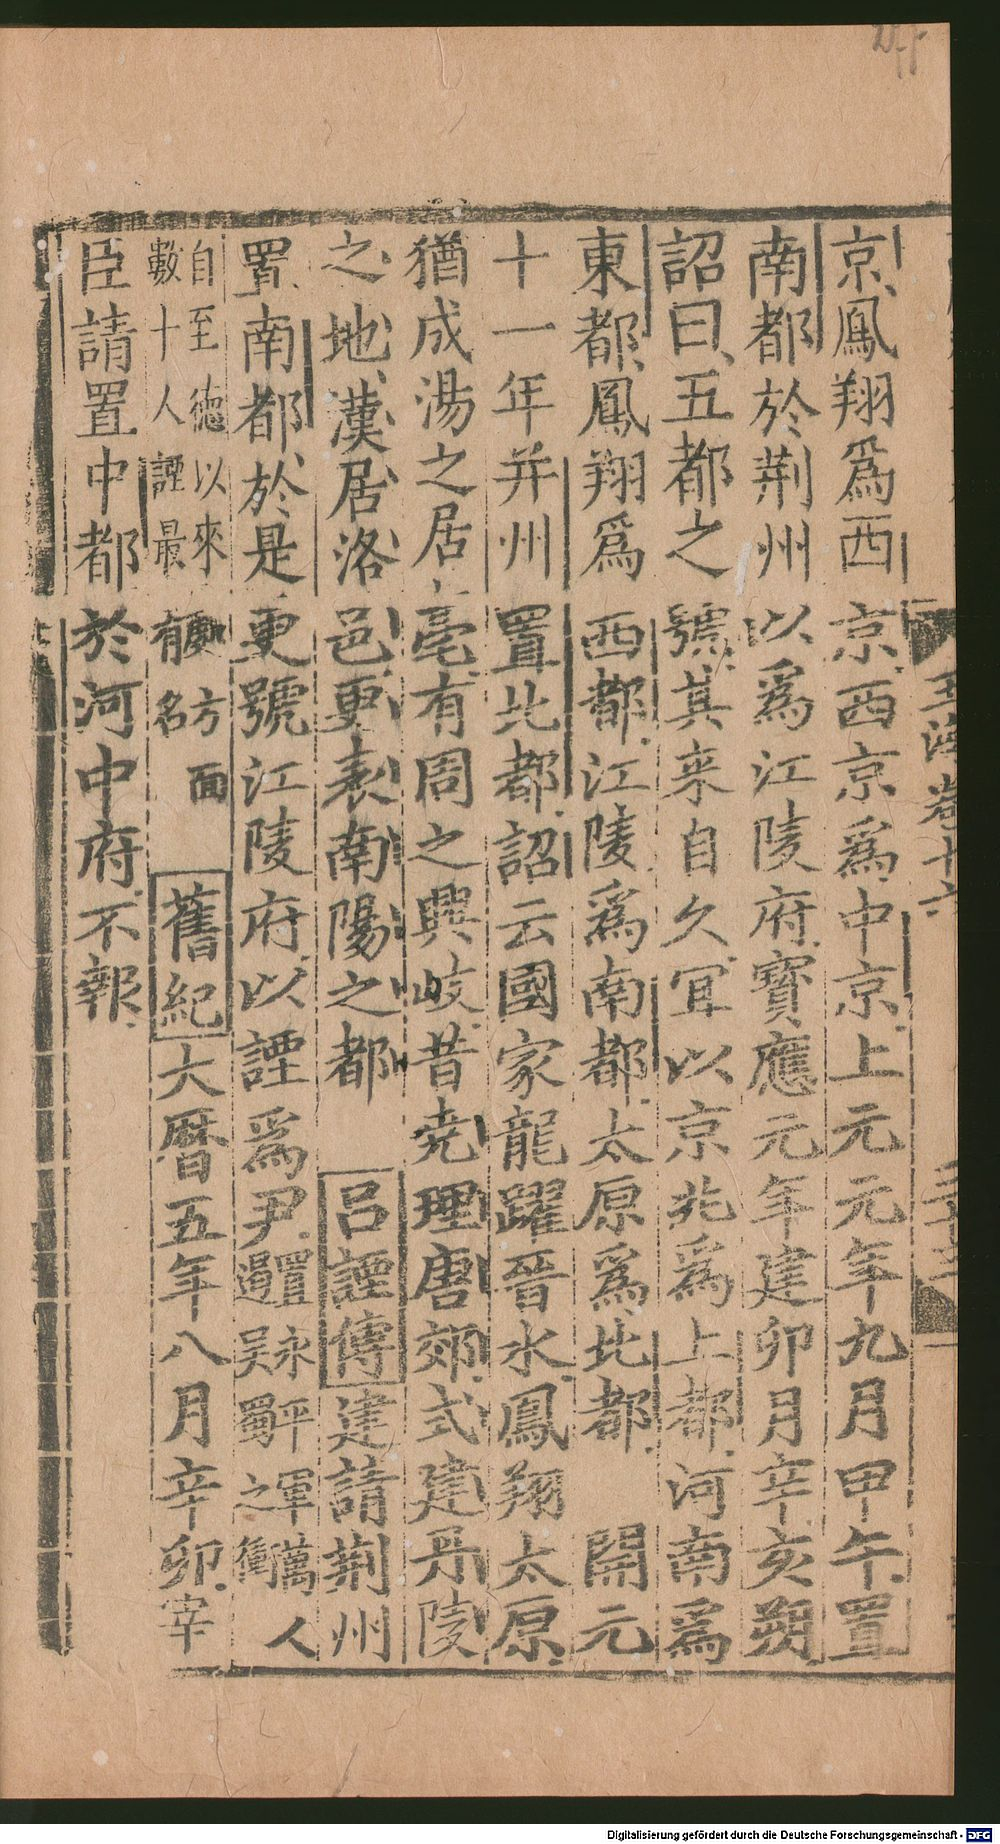 京鳳翔爲西京西京爲中京上元元年九月甲午置
南都於荆州以爲江陵府寶應元年建卯月辛亥朔
詔曰五都之號其来自久冝以京兆爲上都河南爲
東都鳳翔爲西都江陵爲南都太原爲北都　開元
十一年并州置北都詔云國家龍躍晉水鳳翔太原
猶成湯之居亳有周之興岐昔堯理唐郊式建丹陵
之地漢居洛邑更表南陽之都　吕諲傳建請荆州
置南都於是更號江陵府以諲爲尹置永平軍萬人
遏吳蜀之衝
自至德以來處方面
數十人諲最有名
舊紀大曆五年八月辛卯宰
臣請置中都於河中府不報
玉海卷十六
Digitalisierung gefördert durch die Deutsche Forschungsgemeinschaft - DFG